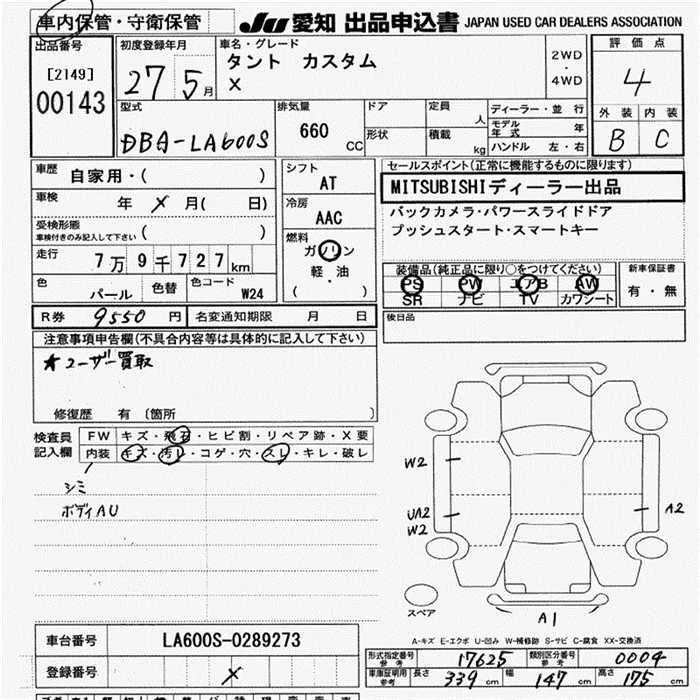 車内保管・守衛保管
JU 愛知 出品申込書 JAPAN USED CAR DEALERS ASSOCIATION
出品番号
[2149]
00143
初度登録年月
27 5月
車名・グレード
タント カスタム
X
2WD
・
4WD
評価点
4
外装 内装
B C
型式
DBA-LA600S
排気量
660 CC
ドア
形状
定員 人
積載 kg
ディーラー・並行
モデル年式 年
ハンドル 左・右
車歴
自家用・( )
車検 年 X 月( 日)
受検形態
車検付きのみ記入して下さい ( )
走行
7万9千727km
色 パール 色替 色コード W24
シフト
AT
冷房
AAC
燃料
ガソリン
軽・油
( )
セールスポイント(正常に機能するものに限ります)
MITSUBISHIディーラー出品
バックカメラ・パワースライドドア
プッシュスタート・スマートキー
装備品(純正品に限り○をつけてください)
PS PW エアB AW
SR ナビ TV カワシート
新車保証書
有・無
R券 9550 円 名変通知期限 月 日
後日品
注意事項申告欄(不具合内容等は具体的に記入して下さい)
★ユーザー買取
修復歴 有 〔箇所 〕
検査員記入欄
FW キズ・飛石・ヒビ割・リペア跡・X要
内装 キズ・汚レ・コゲ・穴・スレ・キレ・破レ
シミ
ボディAU
W2
UA2
W2
A2
スペア
A1
A-キズ E-エクボ U-凹み W-補修跡 S-サビ C-腐食 XX-交換済
車台番号 LA600S-0289273
登録番号 X
形式指定番号 参考 17625 類別区分番号 参考 0004
車庫証明用 参考 長さ 339 cm 幅 147 cm 高さ 175 cm